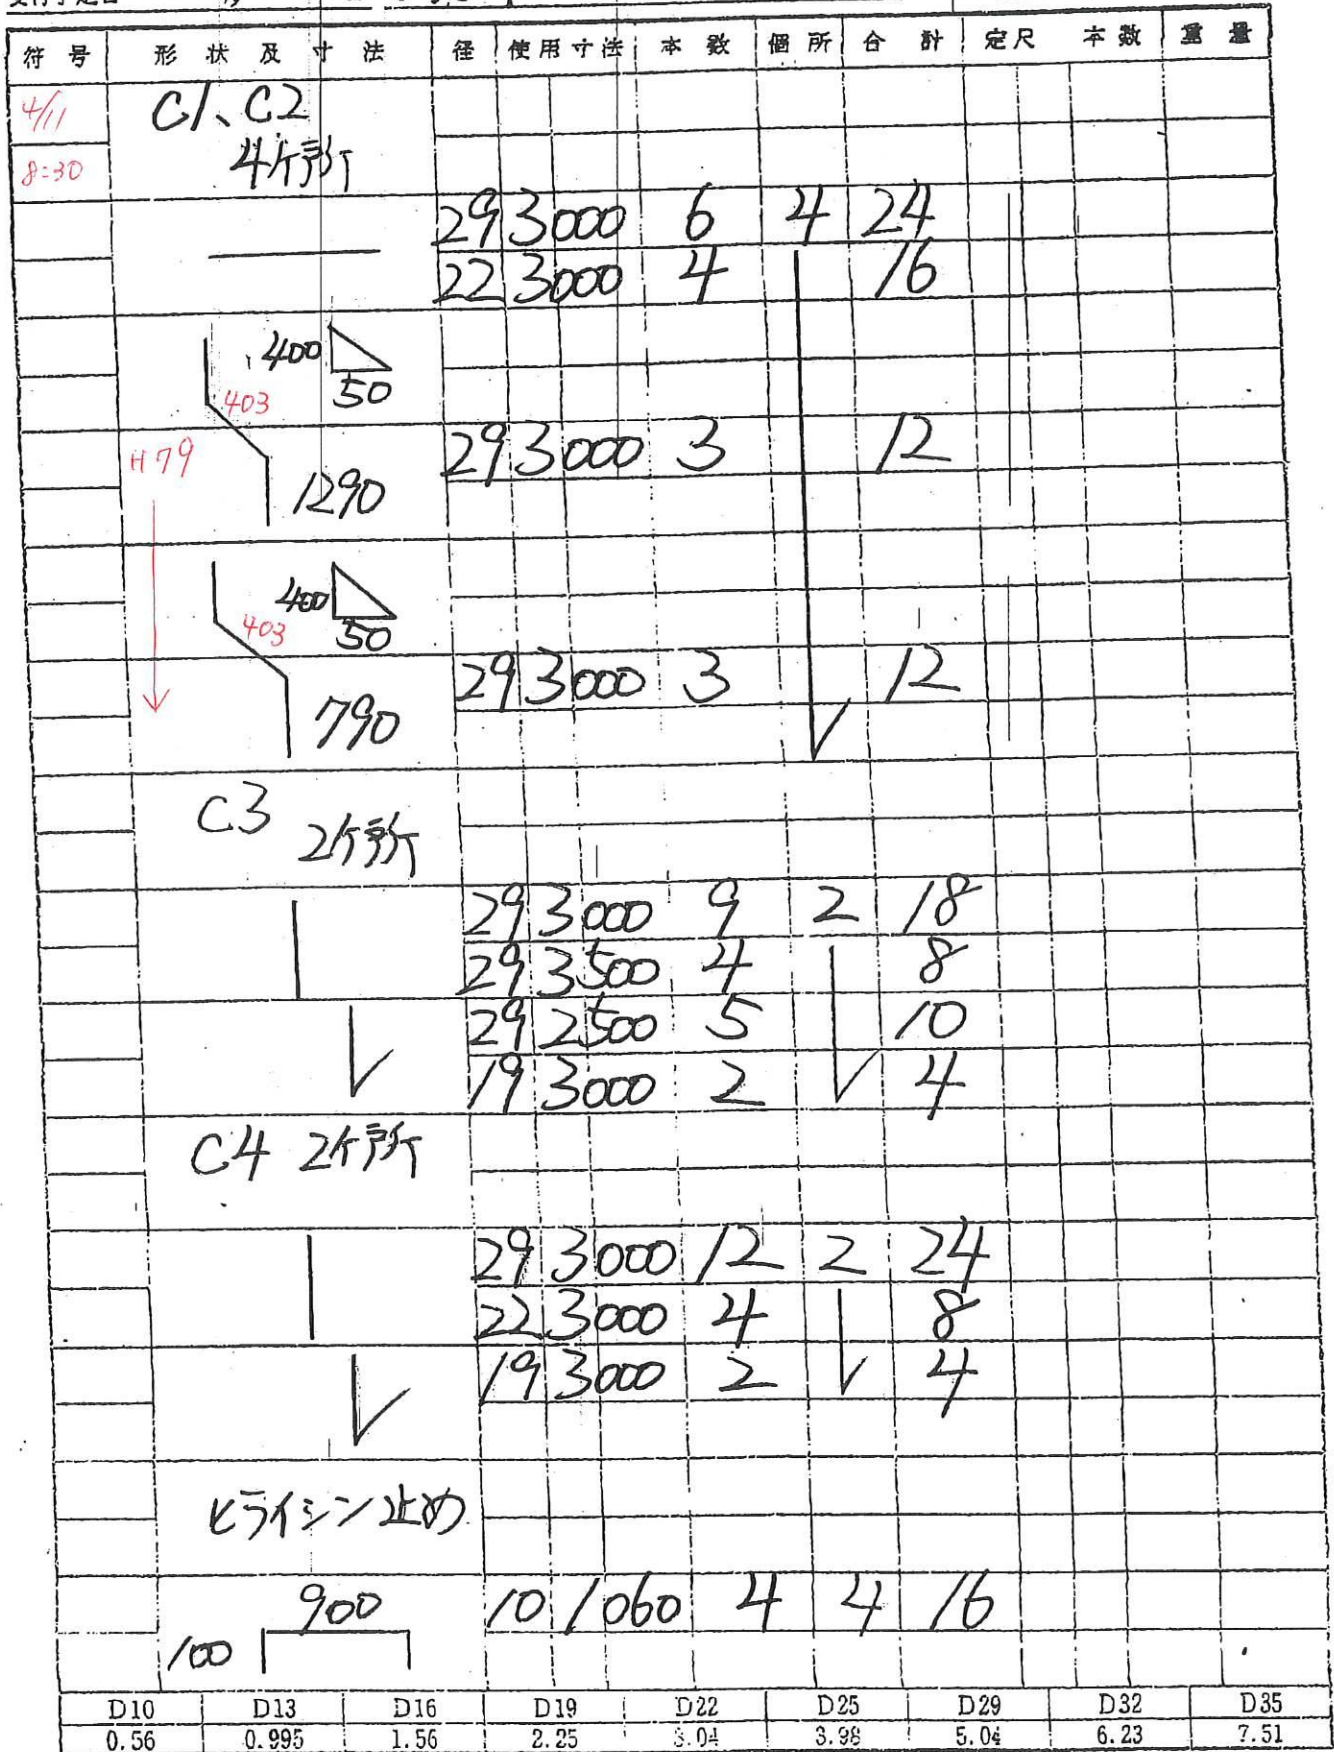 符号 形状及寸法 径 使用寸法 本数 個所 合計 定尺 本数 重量
4/11 C1、C2
8:30 4ケ所
29 3000 6 4 24
22 3000 4 16
400
50
403
H79 29 3000 3 12
1290
400
50
403
29 3000 3 12
790
C3 2ケ所
29 3000 9 2 18
29 3500 4 8
29 2500 5 10
19 3000 2 4
C4 2ケ所
29 3000 12 2 24
22 3000 4 8
19 3000 2 4
ヒライシン止め
900 10 1060 4 4 16
100
D10 D13 D16 D19 D22 D25 D29 D32 D35
0.56 0.995 1.56 2.25 3.04 3.98 5.04 6.23 7.51